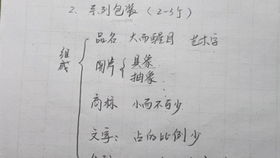 2. 系列包装 (2-5个)
组成
品名 大而醒目 艺术字
图片 { 具象
抽象
商标 小而不可少
文字: 占的比例少